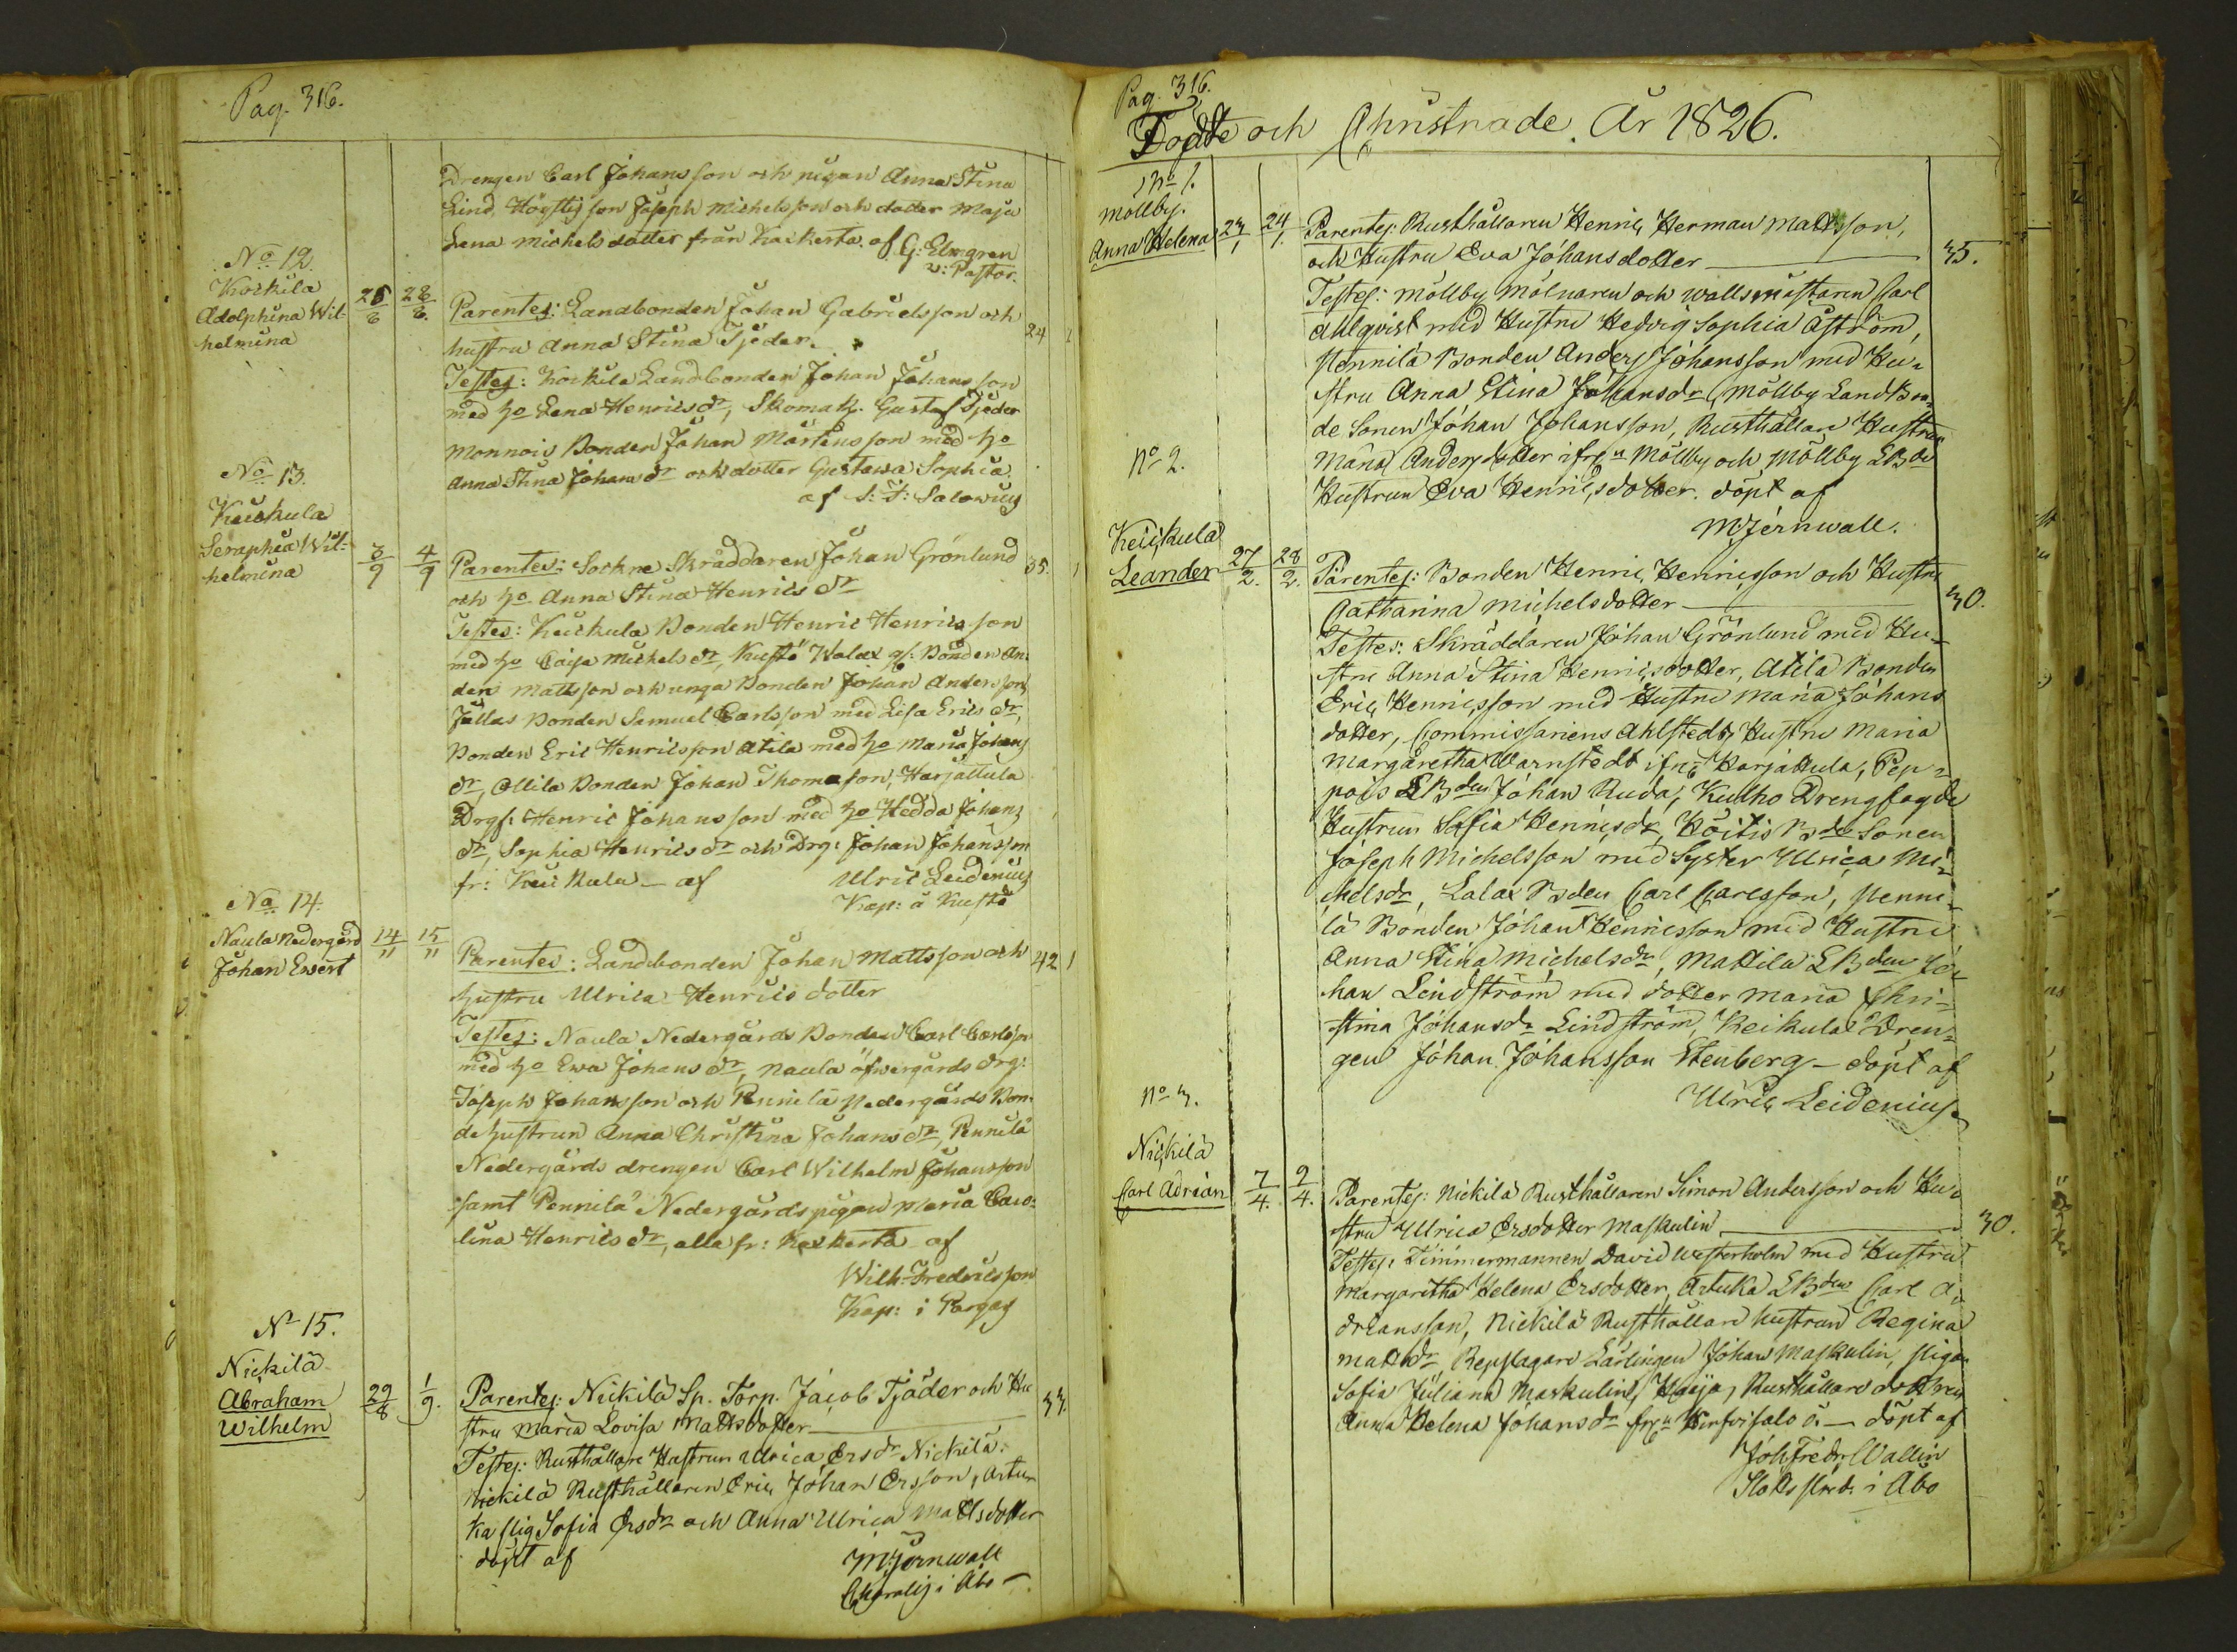 Pag. 316.
Drengen Carl Johansson och pigan Anna Stina
Lind, Höystis son Joseph Michelsson och dotter Maja
Lena Michelsdotter från Karkerta. af G: Elmgren
v: Pastor.
No 12.
Koskila
Adolphina Wil-
helmina
28
6.
Parentes: Landbonden Johan Gabrielsson och
hustru Anna Stina Tjeder.
24
Testes: Koskila Landbonden Johan Johansson
med ho Lena Henricsdr, Skomak. Gustaf Tjeder
Monnois Bonden Johan Mårtensson med ho
Anna Stina Johansdr och dotter Gustava Sophia
af S: F: Salovius
No 13.
Keickula
Seraphia Wil-
helmina
3
9
4
9
Parentes: Sockne Skräddaren Johan Grönlund
och ho Anna Stina Henricsdr
35.
Testes: Keickula Bonden Henric Henricsson
med ho Caisa Michelsdr, Kustö Walax gl: Bonden An-
ders Mattsson och unga Bonden Johan Andersson,
Jullas Bonden Samuel Carlsson med Lisa Ericsdr,
Bonden Eric Henricsson Atila med ho Maria Johans
dr, Ollila Bonden Johan Thomasson, Harjattula
Drgs: Henric Johansson med ho Hedda Johans
dr, Sophia Henricsdr och Drg: Johan Johansson
fr: Keickula - af Ulric Leidenius
Kap: å Kustö
No 14.
Naula Nedergård
Johan Ewert
14
11
15
11
Parentes: Landbonden Johan Mattsson och
hustru Ulrica Henrics dotter
42
Testes: Naula Nedergårds Bonden Carl Carlsson
med ho Ewa Johansdr, Naula öfvergårds drg:
Joseph Johansson och Pennilä Nedergårds Bon-
dehustrun Anna Christina Johansdr, Pennilä
Nedergårds drengen Carl Wilhelm Johansson
samt Pennilä Nedergårds pigan Maria Caro-
lina Henricsdr, alla fr: Karkerta af
Wilh. Fredricsson
Kap: i Pargas
No 15.
Nickilä
Abraham
Wilhelm
29
8
1
9.
Parentes: Nickilä Sp. Torp. Jacob Tjäder och Hu
stru Maria Lovisa Mattsdotter
33.
Testes: Rusthållare Hustrun Ulrica Ersdr Nickilä:
Nickilä Rusthållaren Eric Johan Ersson, Artu
ka Pig Sofia Ersdr och Anna Ulrica Mattsdotter
döpt af M: Jernwall
i Åbo -
Pag. 316.
Födde och Christnade År 1826.
No 1.
Möllby.
Anna Helena
23
1
24
1.
Parentes: Rusthållaren Henric Herman Mattsson,
och Hustru Eva Johansdotter
35.
Testes: Möllby Mölnaren och wallsmästaren Carl
Ahlqvist med Hustru Hedvig Sophia Åström,
Pennilä Bonden Anders Johansson med Hu-
stru Anna Stina Johansdr Möllby Landbon-
de Sonen Johan Johansson, Rusthållare Hustrun
Maria Andersdotter ifrån Möllby och Möllby LBde
Hustrun Eva Henricsdotter. döpt af
M: Jernwall.
No 2.
Keickula
Leander
27
2.
28
2.
Parentes: Bonden Henric Henricsson och Hustru
Catharina Michelsdotter
30.
Testes: Skräddaren Johan Grönlund med Hu-
stru Anna Stina Henricsdotter, Atila Bonden
Eric Henricsson med Hustru Maria Johans
dotter, Commissariens Ahlstedts Hustru Maria
Margaretha Warnstedt ifrån Harjattula, Pep-
pois LBden Johan Ruda, Kulho Drengfogde
Hustrun Sofia Henricsdr, Höitis Bde Sonen
Joseph Michelsson med Syster Ulrica Mi-
chelsdr, Lalax Bden Carl Carlsson, Penni-
lä Bonden Johan Henricsson med Hustru
Anna Stina Michelsdr, Mattila LBden Jo-
han Lindström med dotter Maria Chri-
stina Johansdr Lindström, Keikula Dren-
gen Johan Johansson Stenberg - döpt af
Ulric Leidenius
No 3.
Nickilä
Carl Adrian
7
4.
9
4.
Parentes: Nickilä Rusthållaren Simon Andersson och Hu-
stru Ulrica Ersdotter Maskulin
30.
Testes: Timmermannen David Westerholm med Hustru
Margaretha Helena Ersdotter, Artuka LBden Carl A-
driansson, Nickilä Rusthållare hustrun Regina
Mattsdr Repslagare Lärlingen Johan Maskulin, Pigan
Sofia Juliana Maskulin, Rusthållare dottren
Anna Helena Johansdr - döpt af
Joh. Fredr. Wallin
Slotts Pred. i Åbo